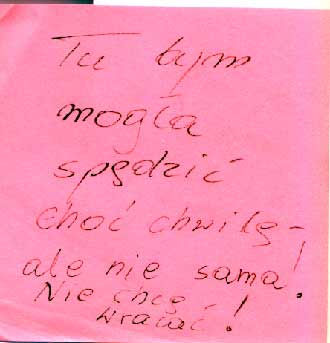 Tu bym
mogła
spędzić
choć chwilę –
ale nie sama!
Nie chcę
wracać!